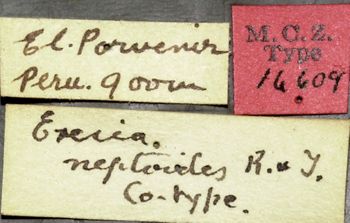 El. Porvenir
Peru. 900m
M. C. Z.
Type
16609
Eresia.
neptoides R. & J.
Co-type.